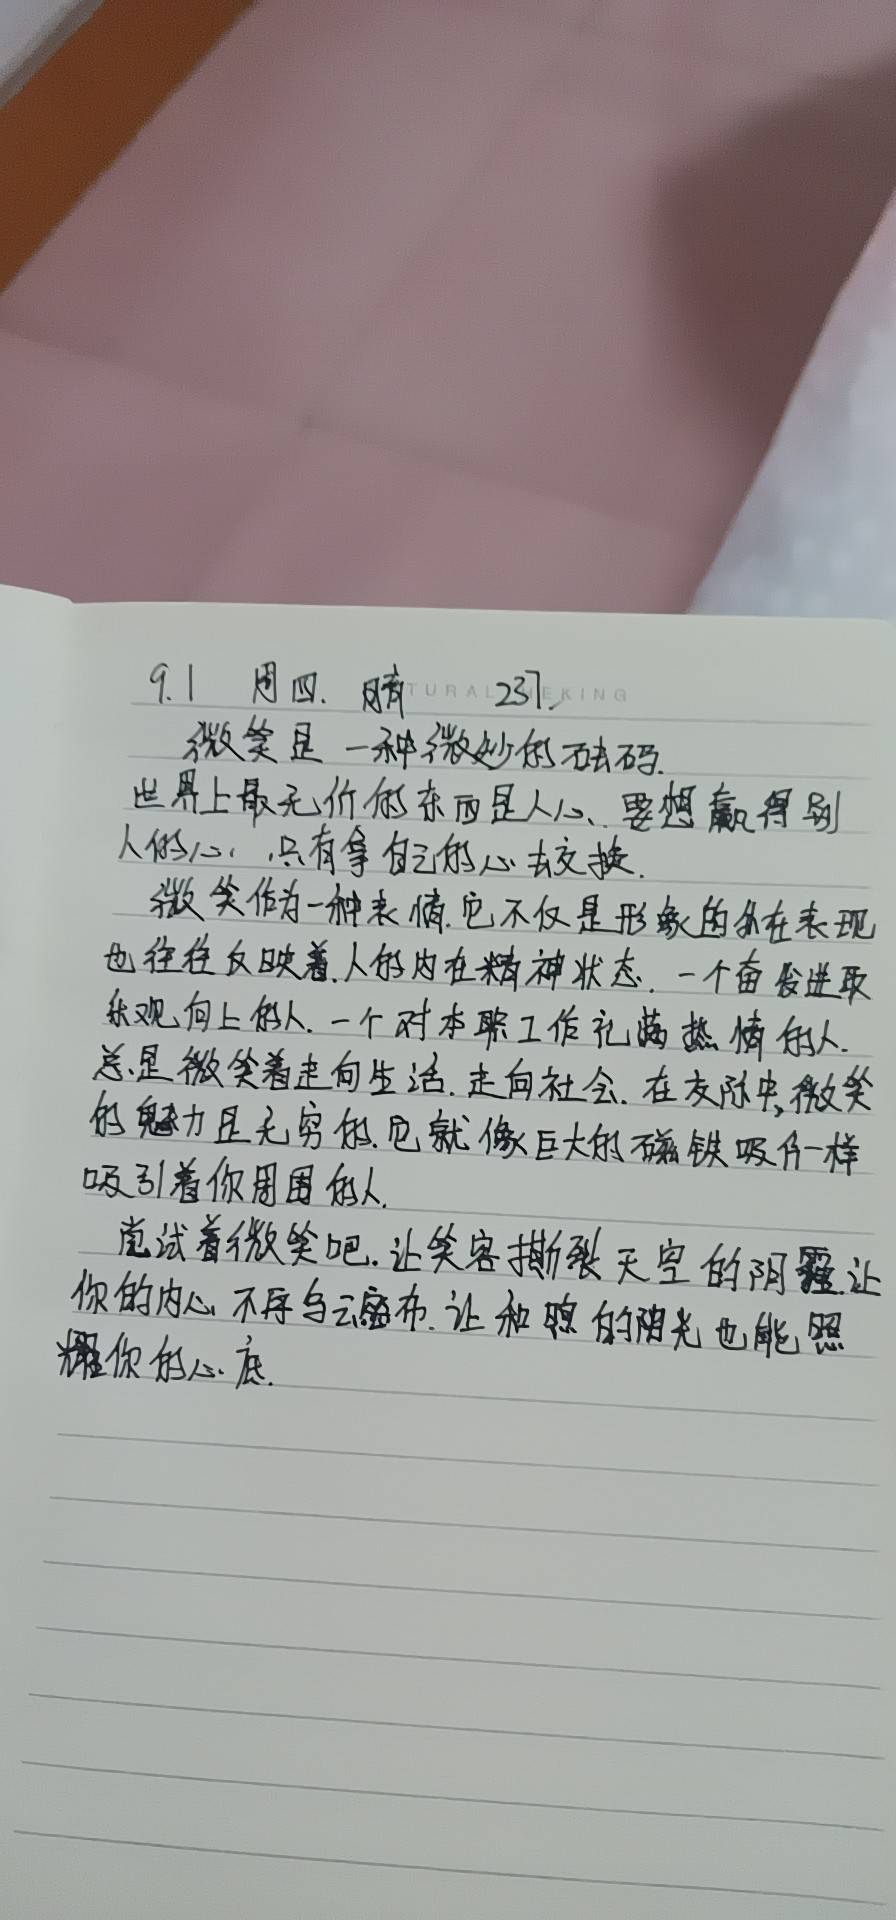 9.1 周四. 晴 237.
TURAL SEEKING
微笑是一种微妙的砝码.
世界上最无价的东西是人心、要想赢得别
人的心, 只有拿自己的心去交换.
微笑作为一种表情.它不仅是形象的外在表现
也往往反映着.人的内在精神状态. 一个奋发进取
乐观向上的人. 一个对本职工作充满热情的人.
总是微笑着走向生活.走向社会. 在交际中,微笑
的魅力是无穷的.它就像巨大的磁铁吸片一样
吸引着你周围的人.
尝试着微笑吧.让笑容撕裂天空的阴霾.让
你的内心不再乌云密布.让和煦的阳光也能照
耀你的心底.